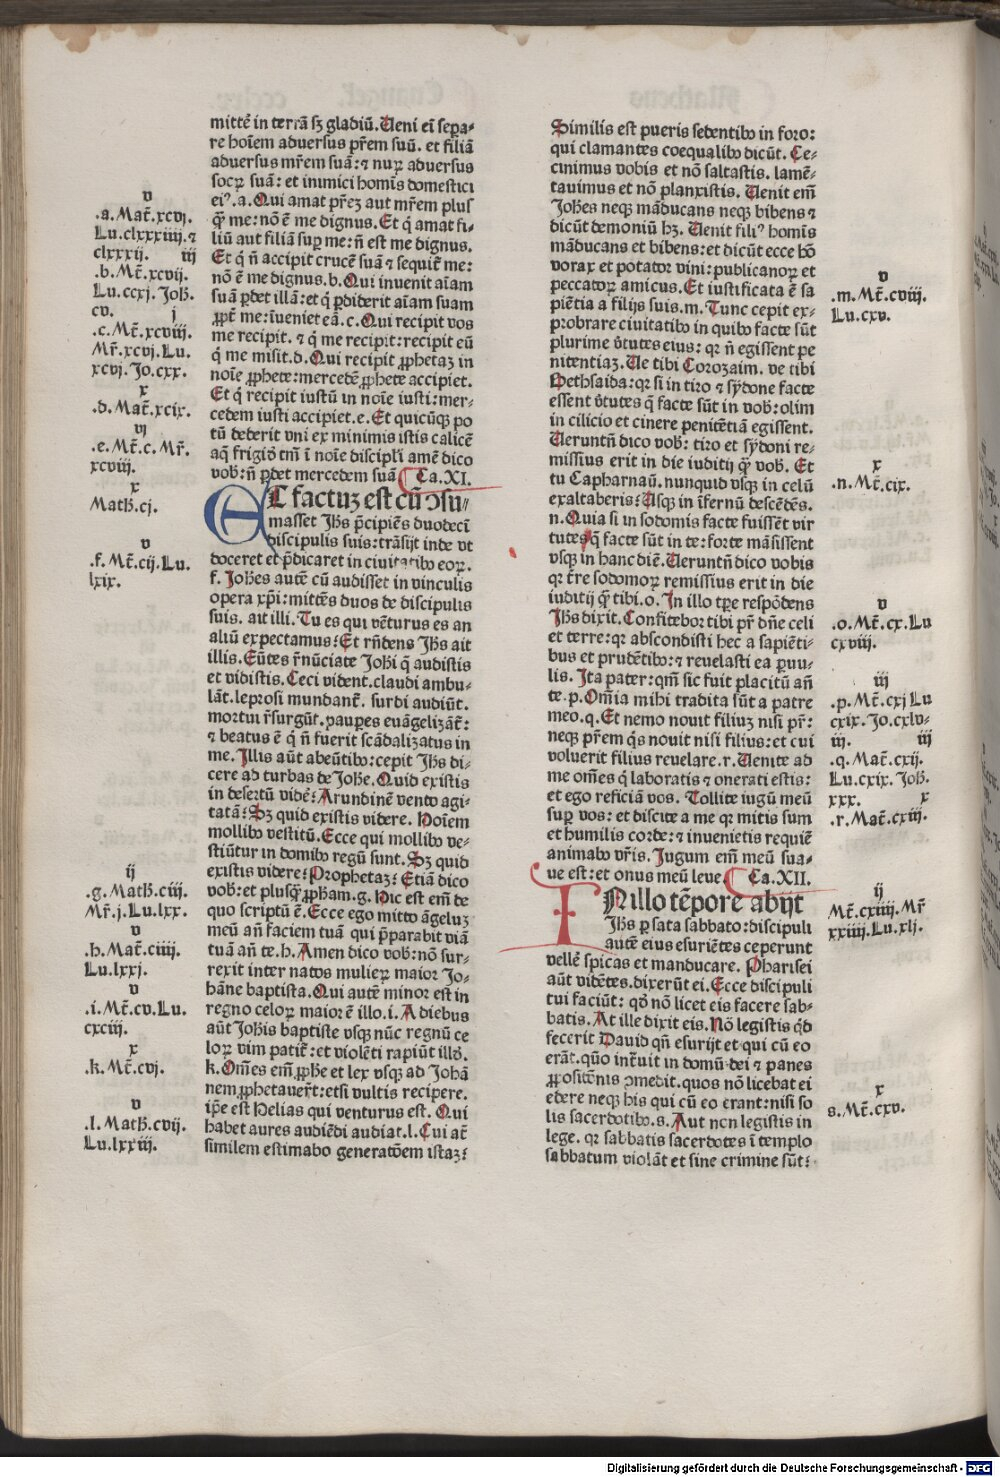 mittē in terrā sꝫ gladiū. Ueni eī sepa⸗
re hoīem aduersus prēm suū. et filiā
aduersus mrēm suā: ⁊ nuꝝ aduersus
socꝝ suā: et inimici homīs domestici
eiꝰ. .a. Qui amat prēꝫ aut mrēm plus
q̄ꝫ me: nō ē me dignus. Et q̇ amat fi⸗
liū aut filiā suꝑ me: ñ est me dignus.
Et q̇ ñ accipit crucē suā ⁊ sequit̃ me:
nō ē me dignus. b. Qui inuenit aīam
suā ꝑdet illā: et q̇ ꝑdiderit aīam suam
ꝓpt̃ me: īueniet eā. c. Qui recipit vos
me recipit. ⁊ q̇ me recipit: recipit eū
q̇ me misit. d. Qui recipit ꝓphetaꝫ in
noīe ꝓphete: mercedē ꝓphete accipiet.
Et q̇ recipit iustū in noīe iusti: mer⸗
cedem iusti accipiet. e. Et quicūqꝫ po
tū dederit vni ex minimis istis calicē
aq̄ frigiδ tm̄ ī noīe discipli amē dico
vob: ñ ꝑdet mercedem suā Ca. XI.
ET factuꝫ est cū ↄsu⸗
masset Jhs p̄cipiēs duodecī
discipulis suis: trāsijt inde vt
doceret et p̄dicaret in ciuitatibꝰ eoꝝ.
f. Johes autē cū audisset in vinculis
opera xp̄i: mittēs duos de discipulis
suis. ait illi. Tu es qui vēturus es an
aliū expectamus: Et rn̄dens Jhs ait
illis. Eūtes r̄nūciate Johi q̄ audistis
et vidistis. Ceci vident. claudi ambu⸗
lāt. leprosi mundant̃. surdi audiūt.
mortui r̄surgūt. pauꝑes euāgelizāt̃:
⁊ beatus ē q̇ ñ fuerit scādalizatus in
me. Illis aūt abeūtibꝰ: cepit Jhs di⸗
cere ad turbas de Johe. Quid existis
in desertū vidē: Arundinē vento agi⸗
tatā: Sꝫ quid existis videre. Hoīem
mollibꝰ vestitū. Ecce qui mollibꝰ ve⸗
stiūtur in domibꝰ regū sunt. Sꝫ quid
existis videre: Prophetaꝫ: Etiā dico
vob: et plusq̄ꝫ ꝓpham. g. Hic est em̄ de
quo scriptū ē. Ecce ego mitto āgeluꝫ
meū añ faciem tuā qui p̄parabit viā
tuā añ te. h. Amen dico vob: nō sur⸗
rexit inter natos mulieꝝ maior Jo⸗
hāne baptista. Qui autē minor est in
regno celoꝝ maior ē illo. i. A diebus
aūt Johis baptiste vsqꝫ nūc regnū ce
loꝝ vim patit̃: et violēti rapiūt illδ.
k. Om̄es em̄ ꝓphe et lex vsqꝫ ad Johā
nem ꝓphetauer̄t: et si vultis recipere.
ip̄e est Helias qui venturus est. Qui
habet aures audiēdi audiat. l. Cui at̄
similem estimabo generatōem istaꝫ:
v
.a. Mat̃. xcvj.
Lu. clxxxiiij. ⁊
clxxxij. iij
.b. Mt̃. xcvij.
Lu. ccxj. Joh.
cv. j
.c. Mt̃. xcviij.
Mr̄. xcvj. Lu.
xcvj. Jo. cxx.
x
.d. Mat̃. xcix.
vj
.e. Mt̃. c. Mr̄.
xcviij.
x
Math. cj.
v
.f. Mt̃. cij. Lu.
lxix.
ij
.g. Math. ciij.
Mr̄. j. Lu. lxx.
v
.h. Mat̃. ciiij.
Lu. lxxj.
v
.i. Mt̃. cv. Lu.
cxciij.
x
.k. Mt̃. cvj.
v
.l. Math. cvij.
Lu. lxxiij.
Similis est pueris sedentibꝰ in foro:
qui clamantes coequalibꝰ dicūt. Ce⸗
cinimus vobis et nō saltastis. lamē⸗
tauimus et nō planxistis. Uenit em̄
Johes neqꝫ māducans neqꝫ bibens ⁊
dicūt demoniū hꝫ. Uenit filiꝰ homīs
māducans et bibens: et dicūt ecce hō
vorax et potator vini: publicanoꝝ et
peccatoꝝ amicus. Et iustificata ē sa
piētia a filijs suis. m. Tunc cepit ex⸗
probrare ciuitatibꝰ in quibꝰ facte sūt
plurime v̇tutes eius: qꝛ ñ egissent pe
nitentiaꝫ. Ue tibi Corozaim. ve tibi
Bethsaida: qꝛ si in tiro ⁊ sydone facte
essent v̇tutes q̄ facte sūt in vob: olim
in cilicio et cinere penitētiā egissent.
Ueruntñ dico vob: tiro et sydoni re⸗
missius erit in die iuditij q̄ꝫ vob. Et
tu Capharnaū. nunquid vsqꝫ in celū
exaltaberis: Usqꝫ in īfernū descēdēs.
n. Quia si in sodomis facte fuissēt vir
tutes q̄ facte sūt in te: forte māsissent
vsqꝫ in hanc diē. Ueruntñ dico vobis
qꝛ t̃re sodomoꝝ remissius erit in die
iuditij q̄ꝫ tibi. o. In illo tꝑe respōdens
Jhs dixit. Confitebor tibi pr̄ dñe celi
et terre: qꝛ abscondisti hec a sapiēti⸗
bus et prudētibꝰ: ⁊ reuelasti ea paruu⸗
lis. Ita pater: qm̄ sic fuit placitū añ
te. p. Om̄ia mihi tradita sūt a patre
meo. q. Et nemo nouit filiuꝫ nisi pr̄:
neqꝫ prēm q̇s nouit nisi filius: et cui
voluerit filius reuelare. r. Uenite ad
me om̄es q̇ laboratis ⁊ onerati estis:
et ego reficiā vos. Tollite iugū meū
suꝑ vos: et discite a me qꝛ mitis sum
et humilis corde: ⁊ inuenietis requiē
animabꝰ vr̄is. Jugum em̄ meū sua⸗
ue est: et onus meū leue. Ca. XII.
IN illo tēpore abijt
Jhs ꝑ sata sabbato: discipuli
autē eius esuriētes ceperunt
vellē spicas et manducare. Pharisei
aūt vidētes. dixerūt ei. Ecce discipuli
tui faciūt: qδ nō licet eis facere sab⸗
batis. At ille dixit eis. Nō legistis q̇d
fecerit Dauid qñ esurijt et qui cū eo
erāt. quō int̃uit in domū dei ⁊ panes
ꝓpositōnis ↄmedit. quos nō licebat ei
edere neqꝫ his qui cū eo erant: nisi so
lis sacerdotibꝰ. s. Aut non legistis in
lege. qꝛ sabbatis sacerdotes ī templo
sabbatum violāt et sine crimine sūt:
v
.m. Mt̃. cviij.
Lu. cxv.
x
.n. Mt̃. cix.
v
.o. Mt̃. cx. Lu
cxviij.
iij
.p. Mt̃. cxj Lu
cxix. Jo. cxlv⸗
iij. iij
.q. Mat̃. cxij.
Lu. cxix. Joh.
xxx. x
.r. Mat̃. cxiij.
ij
Mt̃. cxiiij. Mr̄
xxiiij. Lu. xlj.
x
s. Mt̃. cxv.
Digitalisierung gefördert durch die Deutsche Forschungsgemeinschaft - DFG